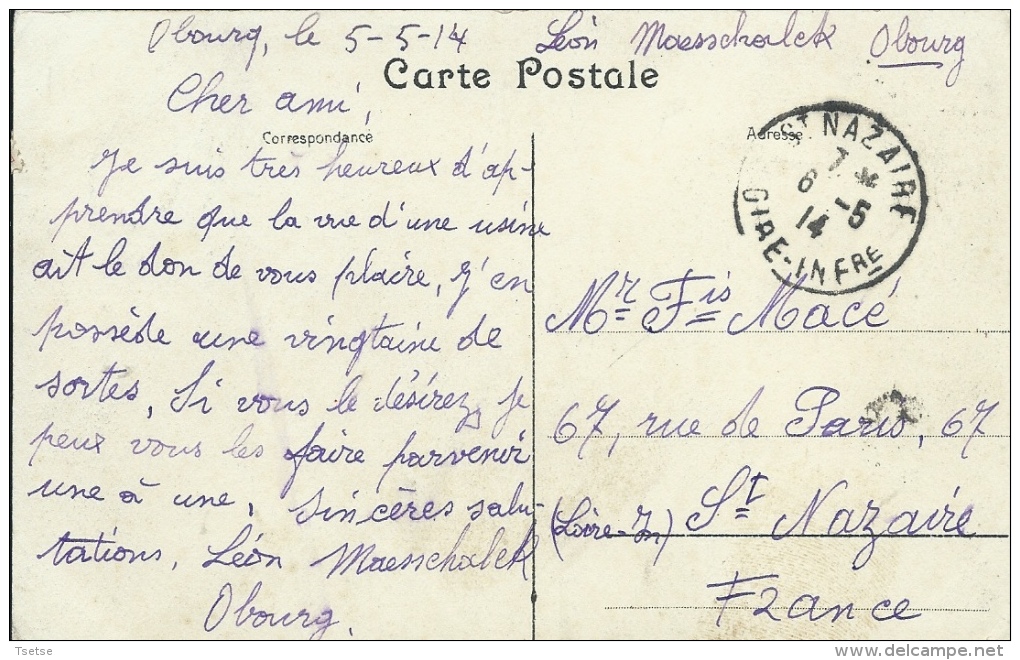 Obourg, le 5-5-14 Léon Maesschalck Obourg
Carte Postale
Cher ami,
Correspondance
Adresse
Je suis très heureux d'ap-
prendre que la vue d'une usine
ait le don de vous plaire, J'en
possède une vingtaine de
sortes, Si vous le désirez, je
peux vous les faire parvenir
une à une, Sincères salu-
tations, Léon Maesschalck
Obourg.
ST NAZAIRE
7
6 -5
14
OIRE-INFRE
Mr Fis Macé
67, rue de Paris, 67
(Loire-In) St Nazaire
France
Tsetse
www.delcampe.net